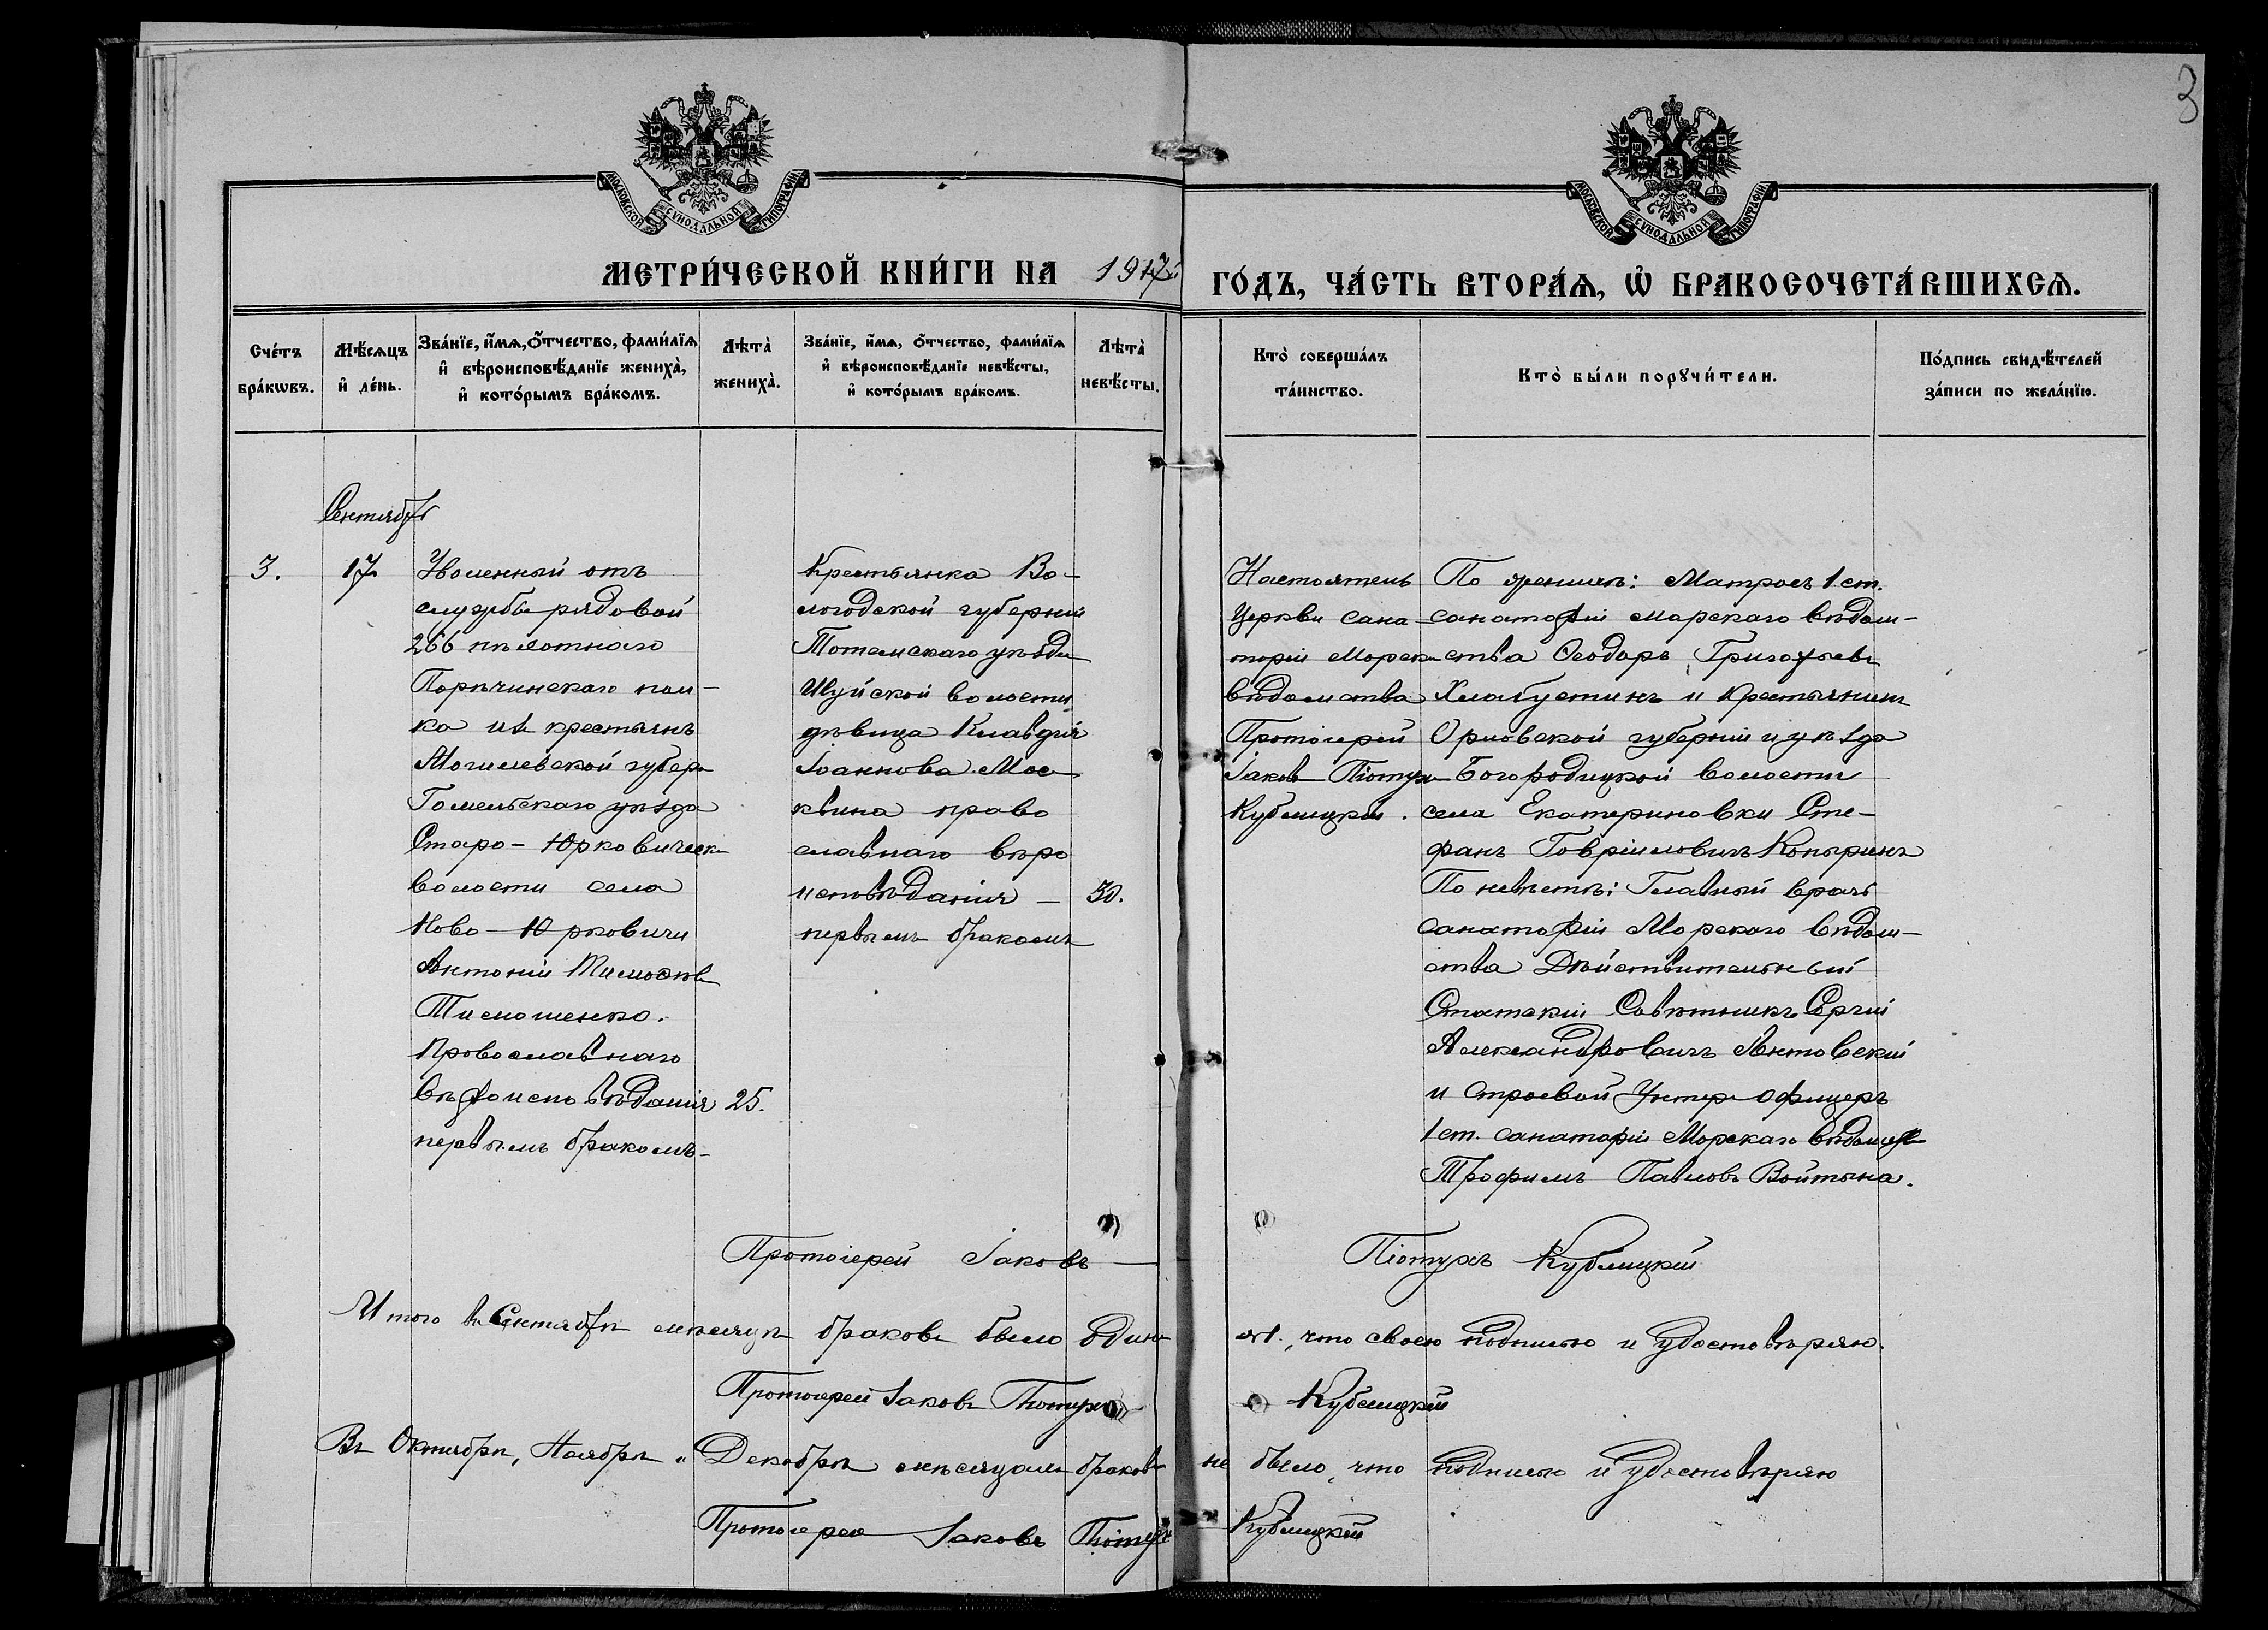 3
МОСКОВСКОЙ СѴНОДАЛЬНОЙ ТИПОГРАФІИ
МОСКОВСКОЙ СѴНОДАЛЬНОЙ ТИПОГРАФІИ
МЕТРИ́ЧЕСКОЙ КНИ́ГИ НА 1917й ГО́ДЪ, ЧА́СТЬ ВТОРА́Ѧ, Ѡ҆ БРАКОСОЧЕТА́ВШИХСѦ.
Сче́тъ
бра́кѡвъ.
Мѣ́сѧцъ
и҆ де́нь.
Зва́нїе, и҆́мѧ, ѻ҆́тчество, фами́лїѧ
и҆ вѣроисповѣ́данїе жениха̀,
и҆ кото́рымъ бра́комъ.
Лѣта̀
жениха̀.
Зва́нїе, и҆́мѧ, ѻ҆́тчество, фами́лїѧ
и҆ вѣроисповѣ́данїе невѣ́сты,
и҆ кото́рымъ бра́комъ.
Лѣта̀
невѣ́сты.
Кто̀ соверша́лъ
та́инство.
Кто̀ бы́ли порꙋчи́тели.
По́дпись свидѣ́телей
за́писи по жела́нїю.
Сентябрь
3.
17
Уволенный отъ
службы рядовой
266 пѣхотнаго
Порѣчинскаго пол-
ка изъ крестьянъ
Могилевской губер
Гомельскаго уѣзда
Старо-Юрковическ
волости села
Ново-Юрковичи
Антоній Тимоѳѣев
Тимошенко.
Православнаго
вѣроисповѣданія 25.
первымъ бракомъ
Крестьянка Во-
логодской губерніи
Тотемскаго уѣзда
Шуйской волости
дѣвица Клавдія
Іоаннова Мос-
квина право
славнаго вѣро
исповѣданія – 30.
первымъ бракомъ
Настоятель
Церкви сана-
торіи Морск
вѣдомства
Протоіерей
Іаковъ Піотух
Кублицкій.
По женихѣ: Матросъ 1 ст.
санаторіи морскаго вѣдом-
ства Ѳеодоръ Григорьевъ
Хлабустинъ и Крестьянинъ
Орловской губерніи и уѣзда
Богородицкой волости
села Екатериновки Сте-
фанъ Гавріиловичъ Копыринъ
По невѣстѣ: Главный врачъ
санаторіи Морского вѣдом-
ства Дѣйствительный
Статскій Совѣтникъ Сергій
Александровичъ Янтовскій
и строевой Унтер офицеръ
1 ст. санаторіи Морскаго вѣдомств
Трофимъ Павловъ Войтына.
Протоіерей Іаковъ — Піотухъ Кублицкій
Итого въ Сентябрѣ мѣсяцѣ браковъ было одинъ №1., что своею подписью и удостовѣряю.
Протоіерей Іаковъ Піотухъ Кублицкій
Въ Октябрѣ, Ноябрѣ и Декабрѣ мѣсяцахъ браковъ не было, что подписью и удостовѣряю
Протоіерей Іаковъ Піотухъ Кублицкій